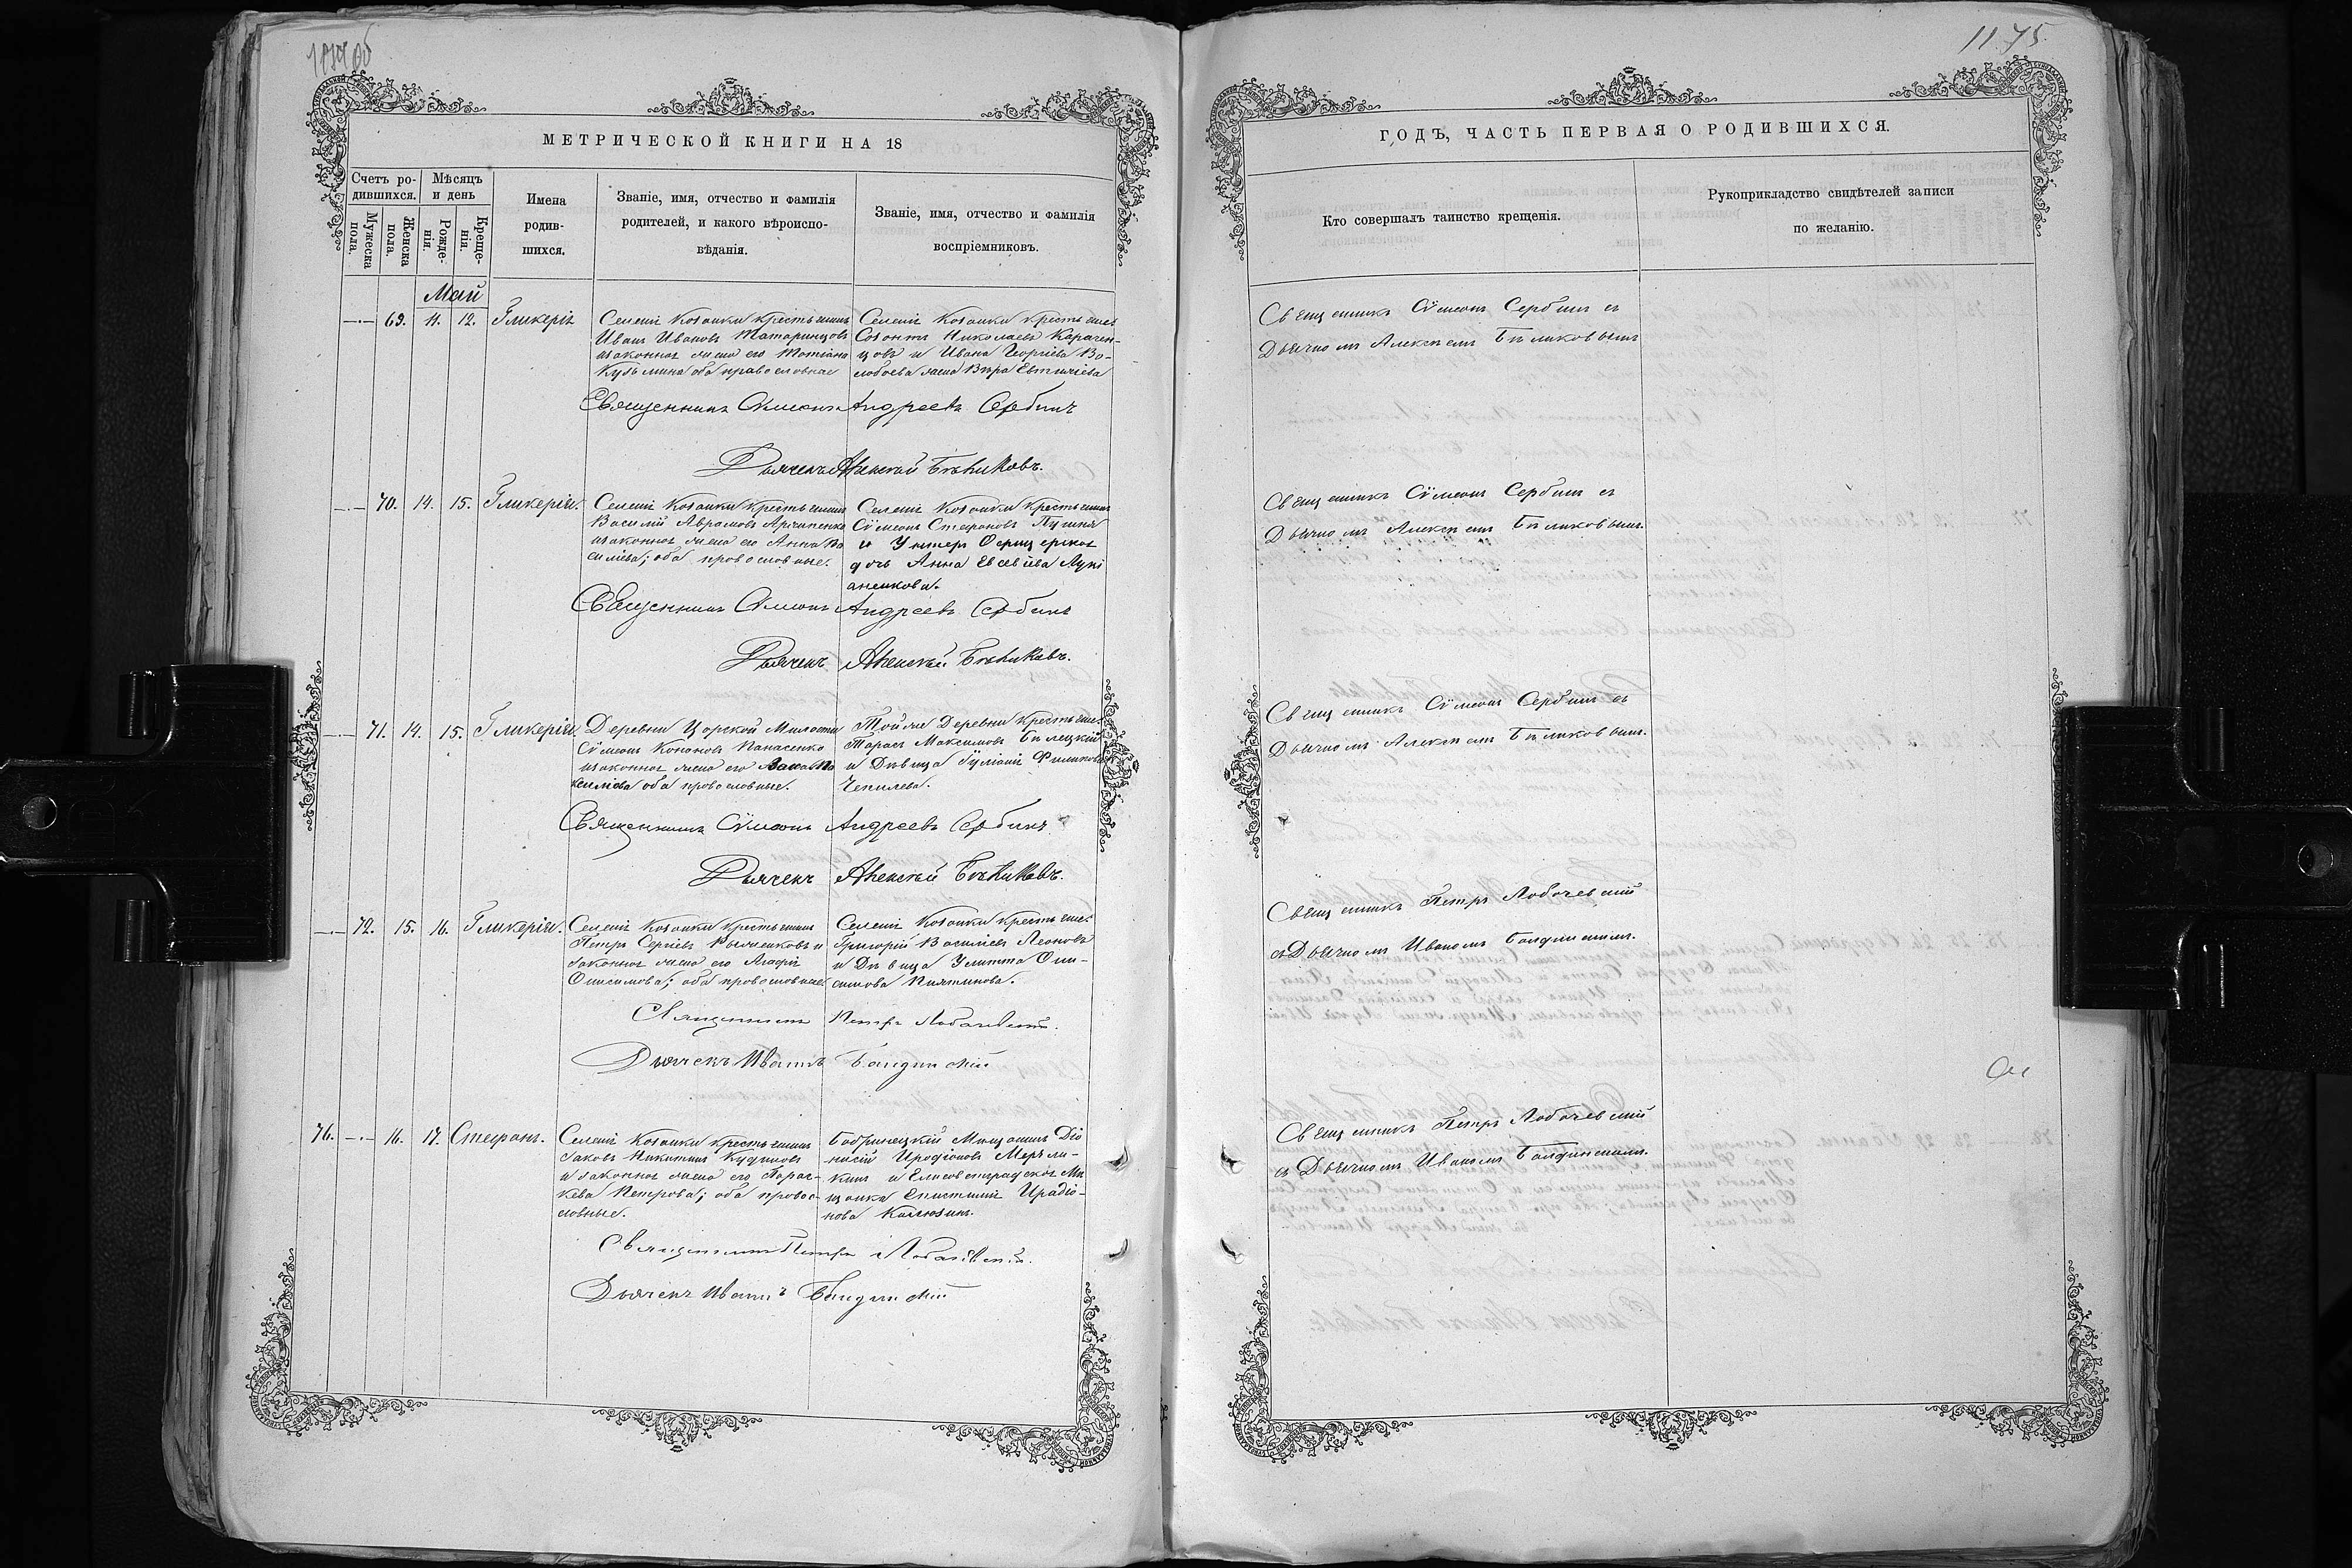 1174 об
1175
МЕТРИЧЕСКОЙ КНИГИ НА 18
Счетъ ро-
дившихся.
Мужеска
пола.
Женска
пола.
Мѣсяцъ
и день
Рожде-
нія.
Креще-
нія.
Имена
родив-
шихся.
Званіе, имя, отчество и фамилія
родителей, и какого вѣроиспо-
вѣданія.
Званіе, имя, отчество и фамилія
воспріемниковъ.
Май
69. 11. 12. Гликерія
Селенія Козанки крестьянинъ
Иванъ Ивановъ Татаринцовъ
и законная жена его Татіана
Кузьмина оба православные
Селенія Козанки крестьян.
Созонтъ Николаевъ Карачен-
цовъ и Ивана Георгіева Во-
лобоева жена Вѣра Евтихіева
Священникъ Симеонъ Андреевъ Сербинъ
Дьячекъ Алексѣй Бѣликовъ.
70. 14. 15. Гликерія.
Селенія Козанки крестьянинъ
Василій Аврамовъ Архипенко
и законная жена его Анна Ва
силіева; оба православные.
Селенія Козанки крестьянинъ
Сѵмеонъ Стефановъ Пушня
и Унтеръ Офицерская
дочь Анна Евсевіева Лукі
аненкова.
Священникъ Симеонъ Андреевъ Сербинъ
Дьячекъ Алексѣй Бѣликовъ.
71. 14. 15. Гликерія.
Деревни Царской Милости
Сѵмеонъ Кононовъ Панасенко
и законная жена его
оба православные.
Той же Деревни крестьян.
Тарасъ Максимовъ Бѣлецкій
и Дѣвица Іуліанія Филипова
Чепилева.
Священникъ Сѵмеонъ Андреевъ Сербинъ
Дьячекъ Алексѣй Бѣликовъ.
72. 15. 16. Гликерія.
Селенія Козанки крестьянинъ
Петръ Сергіевъ и
законная жена его Агафія
Онисимова; оба православные
Селенія Козанки крестьян.
Григорій Василіевъ Леоновъ
и Дѣвица Улитта Они-
симова Пиятинова.
Священникъ Петръ Лобачевскій.
Дьячекъ Иванъ Балдинскій
76. 16. 17. Стефанъ.
Селенія Козанки крестьянинъ
Іаковъ Никитинъ Кудиновъ
и законная жена его Парас-
кева Петрова; оба правос-
лавные.
Бобринецкій Мѣщанинъ Діо
нисій Иродіоновъ Мерѣли-
кинъ и Елисаветградская Мѣ
щанка Епистимія Ирадіо-
нова
Священникъ Петръ Лобачевскій.
Дьячекъ Иванъ Балдинскій
ГОДЪ, ЧАСТЬ ПЕРВАЯ О РОДИВШИХСЯ.
Кто совершалъ таинство крещенія.
Рукоприкладство свидѣтелей записи
по желанію.
Священникъ Сѵмеонъ Сербинъ съ
Дьячкомъ Алексѣемъ Бѣликовымъ
Священникъ Сѵмеонъ Сербинъ съ
Дьячкомъ Алексѣемъ Бѣликовымъ.
Священникъ Сѵмеонъ Сербинъ съ
Дьячкомъ Алексѣемъ Бѣликовымъ.
Священникъ Петръ Лобачевскій
съ Дьячкомъ Иваномъ Балдинскимъ.
Священникъ Петръ Лобачевскій
съ Дьячкомъ Иваномъ Балдинскимъ.